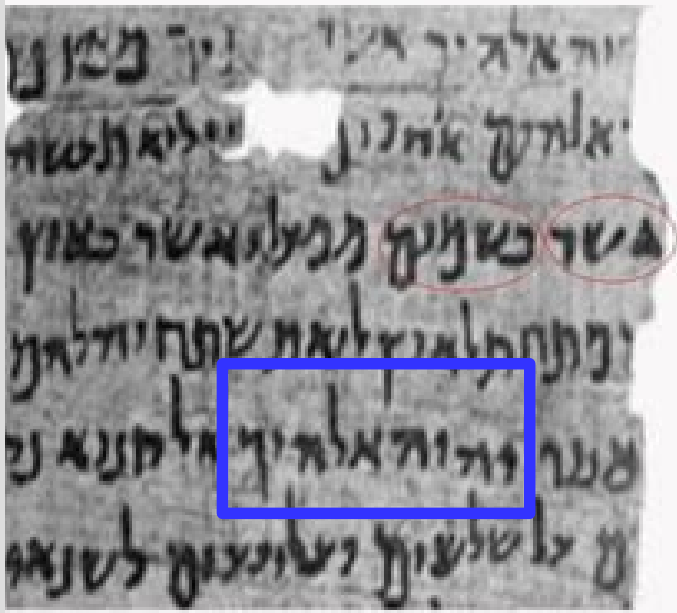 יהוה אלהיך אשר תיך מארץ
אלהים אחרים לוא תעשה
אשר בשמים ממעל ואשר בארץ
ם מתחת לארץ לוא תשתחוה להם
אנכי יהוה אלהיך אל קנוא
ם על שלשים ועל רבעים לשנאי